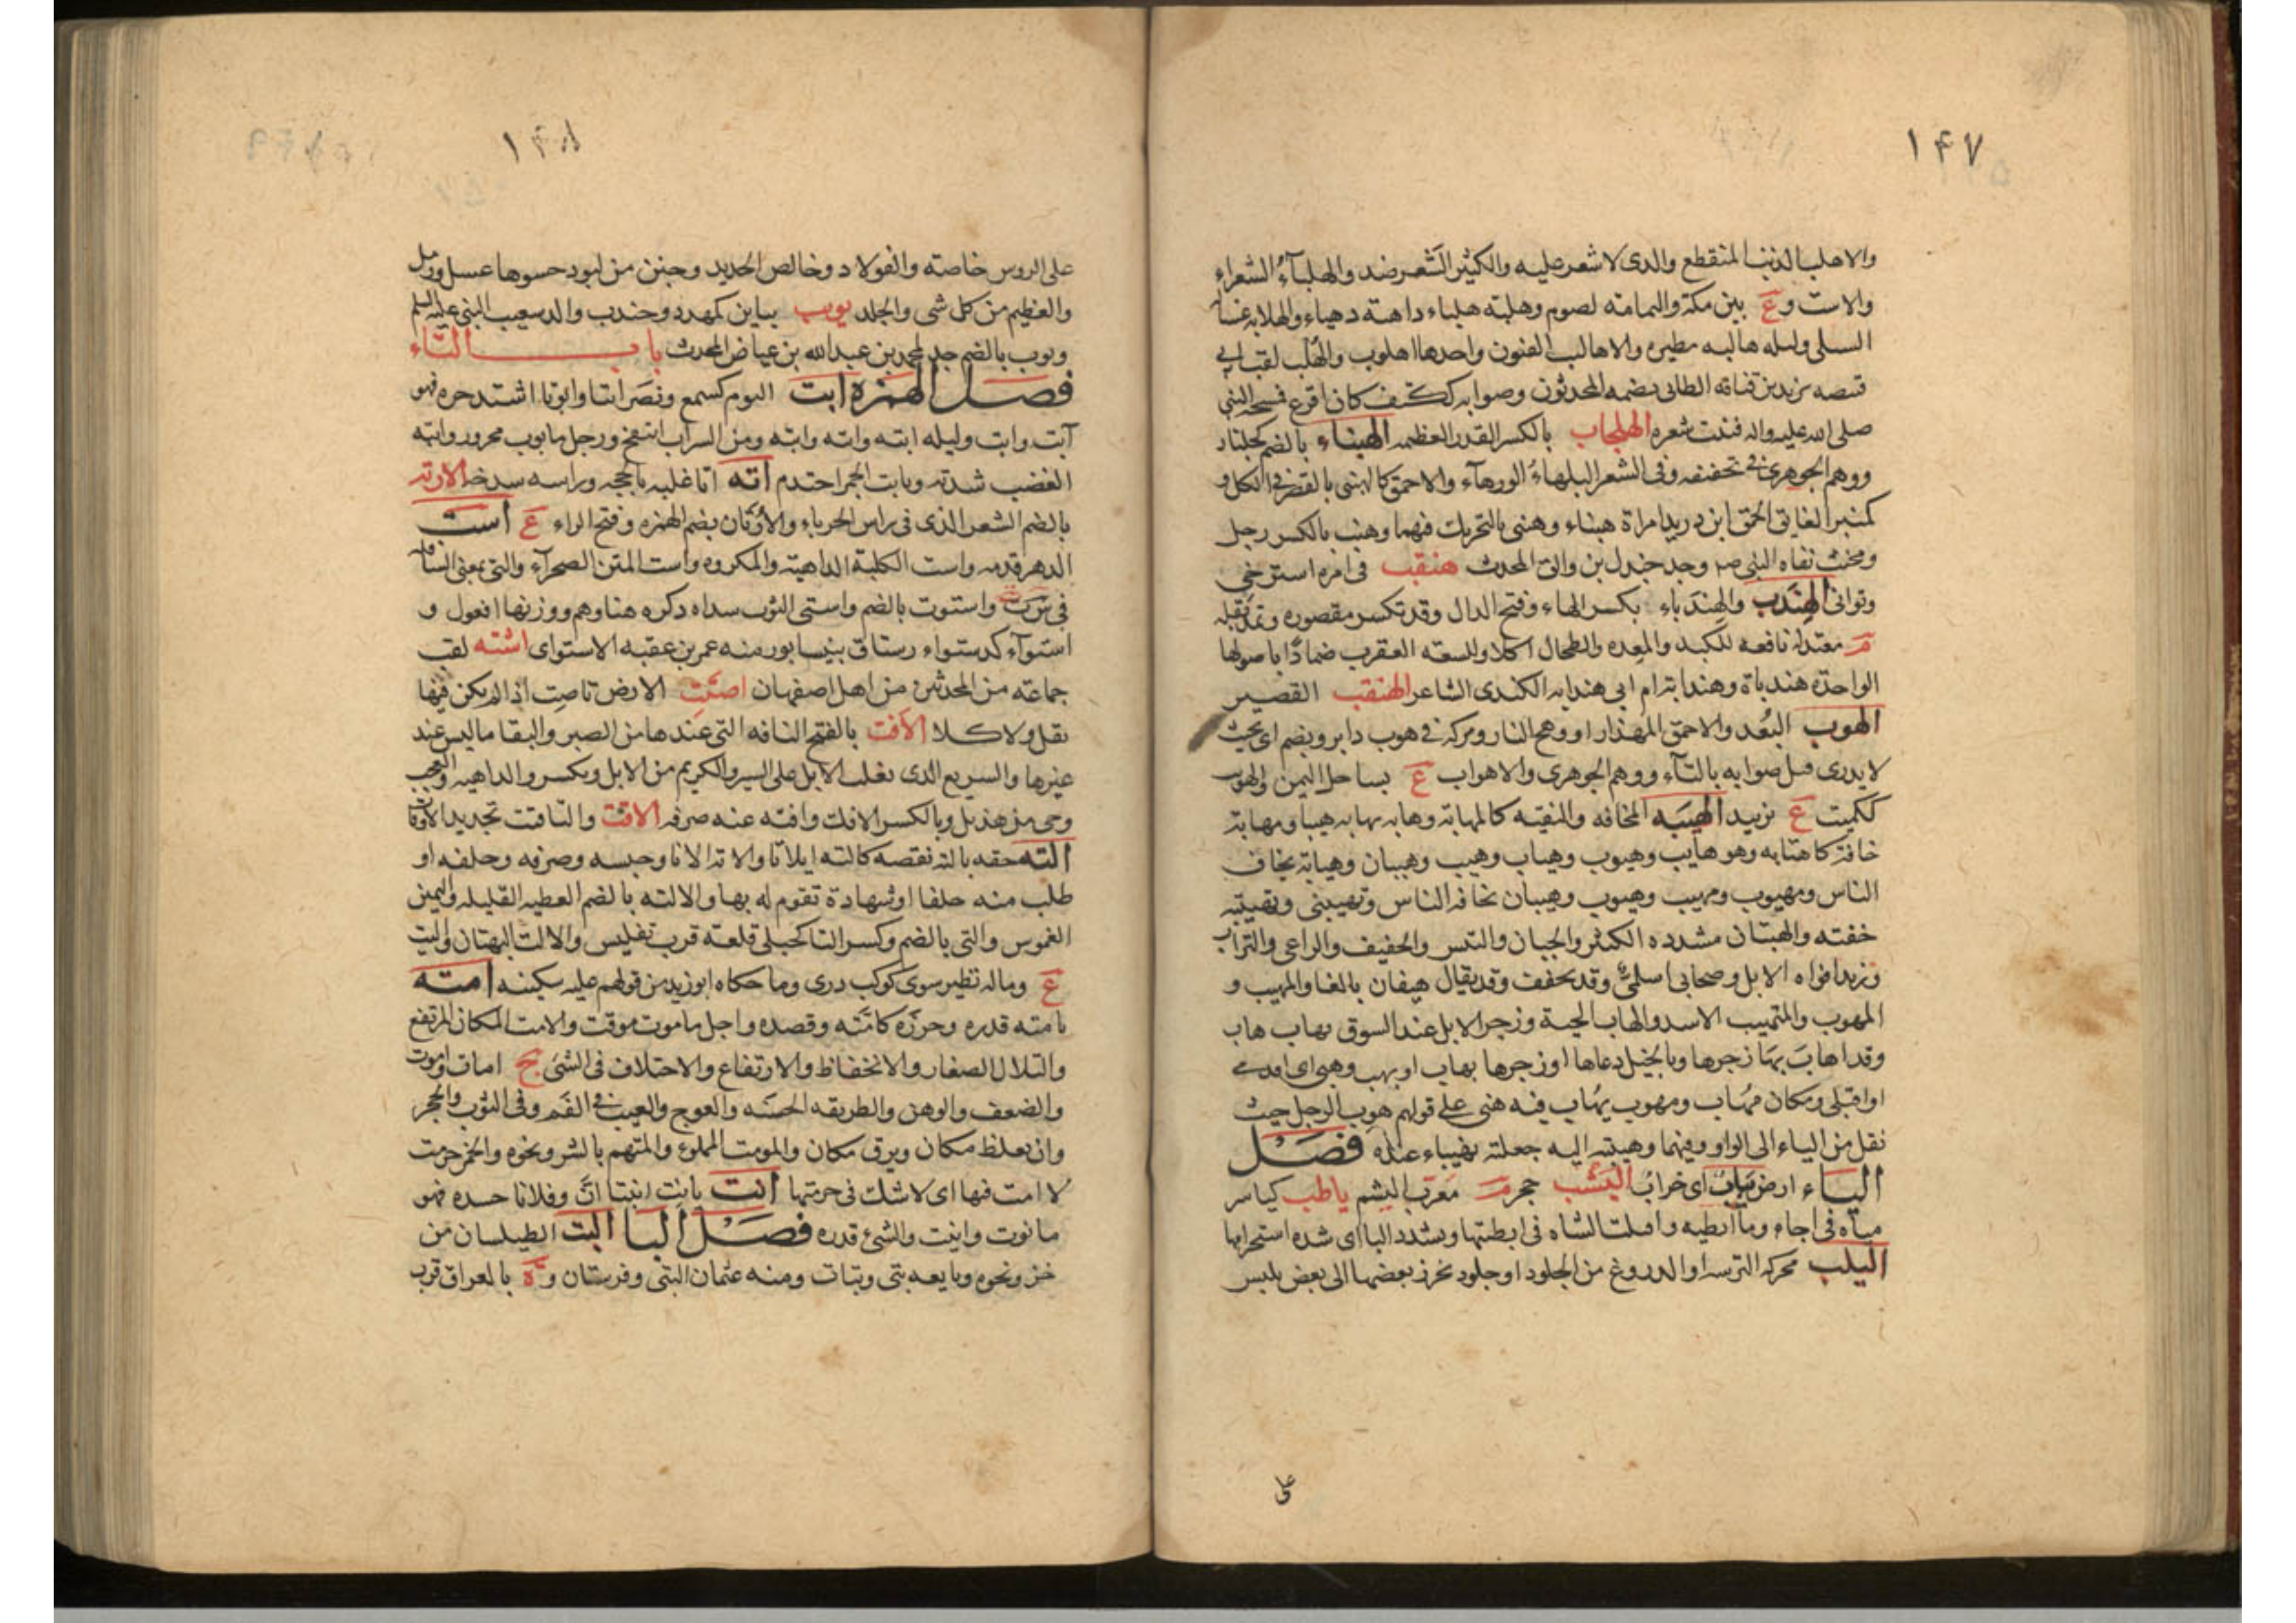 ١٤٧
والاهلب الذنب المنقطع والذى لا شعر عليه والكثير الشعر ضد والهلباء الشعراء
والاست وع بين مكة واليمامة لصوم وهلبة هلباء داهية دهياء والهلابة غسالة
السلى وليلة هالبة مطيرة والاهاليب الفنون واحدها اهلوب والهلب لقب ابى
قبيصة يزيد بن قنافة الطائى يضمه المحدثون وصوابه ككتف كان اقرع فمسحه النبى
صلى الله عليه واله فنبت شعره الهلجاب بالكسر القدر العظيمه الهنباء بالضم كجلنار
ووهم الجوهرى فى تخفيفه وفى الشعر البلهاء الورهاء والاحمق كالهنبى بالقصر فى الكل و
كمنبر الفايق الحمق ابن دريد امراة هنباء وهنبى بالتحريك فيهما وهنب بالكسر رجل
ومخنث نفاه النبى صم وجد جندل بن والق المحدث هنقب فى امره استرخى
وتوانى الهندب والهندباء بكسر الهاء وفتح الدال وقد تكسر مقصوره وتمد بقله
م معتدلة نافعه للكبد والمعده والطحال اكلا وللسعة العقرب ضمادًا باصولها
الواحدة هندباة وهندابة ام ابى هندابة الكندى الشاعر الهنقب القصير
الهوب البعد والاحمق المهذار ووهج النار وتركته فى هوب دابر ويضم اى بحيث
لا يدرى قيل صوابه بالتاء ووهم الجوهرى والاهواب ع بساحل اليمن والهوب
ككميت ع بزبيد الهيبه المخافه والتقيه كالمهابة وهابه يهابه هيبا ومهابة
خافه كاهتابه وهو هايب وهيوب وهياب وهيب وهيبان وهيابة يخاف
الناس ومهيوب ومهيب وهيوب وهيبان تخافه الناس وتهيبنى وتهيبته
خفته والهيبان مشدده الكثير والجبان والتيس والخفيف والراعى والتراب
وزبد افواه الابل وصحابى اسلمى وقد يخفف وقد يقال هيفان بالفا والمهيب و
المهوب والمتهيب الاسد والهاب الحية وزجر الابل عند السوق بهاب هاب
وقد اهاب بها زجرها وبالخيل دعاها او زجرها بهاب او بهب وهبى اى اقدمى
او اقبلى ومكان مهاب ومهوب يهاب فيه هنى على قولهم هوب الرجل حيث
نقل من الياء الى الواو وفيهما وهيبته اليه جعلته مهيباء عنده فصل
الياء ارض يباب اى خراب اليشب حجر م معرب اليشم ياطب كياسر
مياه فى اجاء وما ايطبه واقبلت الشاه فى ايطبتها وبشدد البا اى شده استحرامها
اليلب محركه الترسة او الدروع من الجلود او جلود تخرز بعضها الى بعض يلبس
على
١٤٨
على الروس خاصته والفولاد وخالص الحديد وجنن من لبود حشوها عسل ورمل
والعظيم من كل شى والجلد يويب بياين كمهدد وجندب والد شعيب النبى عليه السلم
وبوب بالضم جد لمحمد بن عبد الله بن عياض المحدث باب التاء
فصل الهمزه ابت اليوم كسمع ونصر ابتا وابوتا اشتد حره فهو
آبت وابت وليله ابته وابته وابته ومن الشراب انتفخ ورجل مابوب محرور وابته
الغضب شدته وتابت الجمر احتدم اته اتا غلبه بالحجه وراسه شدخه الارته
بالضم الشعر الذى فى راس الحرباء والأرتان بضم الهمزه وفتح الراء ع است
الدهر قدمه واست الكلبة الداهية والمكروه واست المتن الصحراء والتى بمعنى السافله
فى سته واستوت بالضم واستى الثوب سداه ذكره هنا وهم ووزنها افعول و
استواء كدستواء رستاق بنيسابور منه عمر بن عقبه الاستواى اشته لقب
جماعة من المحدثين من اهل اصفهان اصتت الارض تاصت اذا لم يكن فيها
بقل ولا كلا الأفت بالفتح الناقه التى عندها من الصبر والبقا ما ليس عند
غيرها والسريع الذى يغلب الابل على السير والكريم من الابل ويكسر والداهيه والعجب
وحى من هذيل وبالكسر الافك وافته عنه صرفه الاقت والتاقت تحديد الاوقات
الته حقه يالته نقصه كالته ايلاتا والاته الاتا وحبسه وصرفه وحلفه او
طلب منه حلفا او شهادة تقوم له بها والالته بالضم العطيه القليله واليمين
الغموس والتى بالضم وكسر التا كحبلى قلعة قرب تفليس والالت البهتان واليت
ع وماله نظير سوى كوكب درى وما حكاه ابو زيد من قولهم عليه سكينه امته
يامته قدره وحرزه كامته وقصده واجل ماموت موقت والامت المكان المرتفع
والتلال الصغار والانخفاض والارتفاع والاختلاف فى الشى ج امات واموت
والضعف والوهن والطريقه الحسنه والعوج والعيب فى الفم وفى الثوب والحجر
وان يغلظ مكان ويرق مكان والموت المملوء والمتهم بالشر ونحوه والخمر حرمت
لا امت فيها اى لا شك فى حرمتها انت يانت انيتا ان وفلانا حسده فهو
مانوت وانيت والشئ قدره فصل البا البت الطيلسان من
خز ونحوه وبايعه بتى وبتات ومنه عثمان البتى وفرستان وة بالعراق قرب